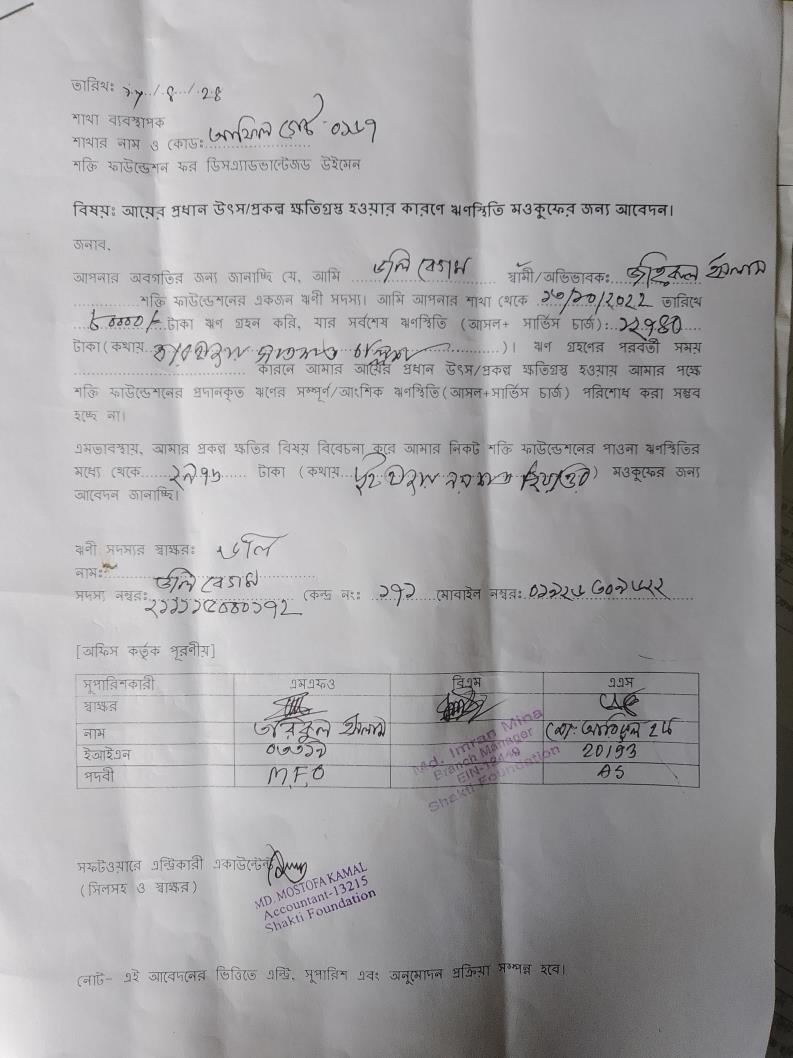 তারিখঃ ২৭/৪/২৪
শাখা ব্যবস্থাপক
শাখার নাম ও কোডঃ
শক্তি ফাউন্ডেশন ফর ডিসএ্যাডভান্টেজড উইমেন
বিষয়ঃ আয়ের প্রধান উৎস/প্রকল্প ক্ষতিগ্রস্থ হওয়ার কারণে ঋণস্থিতি মওকুফের জন্য আবেদন।
জনাব,
আপনার অবগতির জন্য জানাচ্ছি যে, আমি ডলি বেগম স্বামী/অভিভাবকঃ ইসলাম
শক্তি ফাউন্ডেশনের একজন ঋণী সদস্য। আমি আপনার শাখা থেকে ১৩/১০/২০২২ তারিখে
৮০০০০/- টাকা ঋণ গ্রহন করি, যার সর্বশেষ ঋণস্থিতি (আসল+ সার্ভিস চার্জ)ঃ
টাকা(কথায় )। ঋণ গ্রহণের পরবর্তী সময়
কারনে আমার আয়ের প্রধান উৎস/প্রকল্প ক্ষতিগ্রস্থ হওয়ায় আমার পক্ষে
শক্তি ফাউন্ডেশনের প্রদানকৃত ঋণের সম্পূর্ণ/আংশিক ঋণস্থিতি(আসল+সার্ভিস চার্জ) পরিশোধ করা সম্ভব
হচ্ছে না।
এমতাবস্থায়, আমার প্রকল্প ক্ষতির বিষয় বিবেচনা করে আমার নিকট শক্তি ফাউন্ডেশনের পাওনা ঋণস্থিতির
মধ্যে থেকে টাকা (কথায় দুই হাজার নয়শত ) মওকুফের জন্য
আবেদন জানাচ্ছি।
ঋণী সদস্যর স্বাক্ষরঃ ডলি
নামঃ ডলি বেগম
সদস্য নম্বরঃ কেন্দ্র নংঃ ১৭২ মোবাইল নম্বরঃ
[অফিস কর্তৃক পূরণীয়]
সুপারিশকারী এমএফও বিএম এএস
স্বাক্ষর
নাম তরিকুল ইসলাম
Md. Imran Mina
Branch Manager
Shakti Foundation
ইআইএন 20193
পদবী M.F.O AS
সফটওয়ারে এন্ট্রিকারী একাউন্টেন্ট
(সিলসহ ও স্বাক্ষর)
MD. MOSTOFA KAMAL
Accountant-13215
Shakti Foundation
নোট- এই আবেদনের ভিত্তিতে এন্ট্রি, সুপারিশ এবং অনুমোদন প্রক্রিয়া সম্পন্ন হবে।